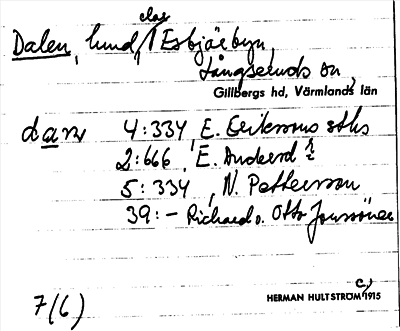 Dalen, lund, / Esbjörbyn,
Långseruds sn,
Gillbergs hd, Värmlands län
dan, 4:334, E. Erikssons sths
2:666, E. Anderd
5:334, N. Petterson
39:- Richard o. Otto Jonssöner
7(6)
HERMAN HULTSTRÖM c) 1915